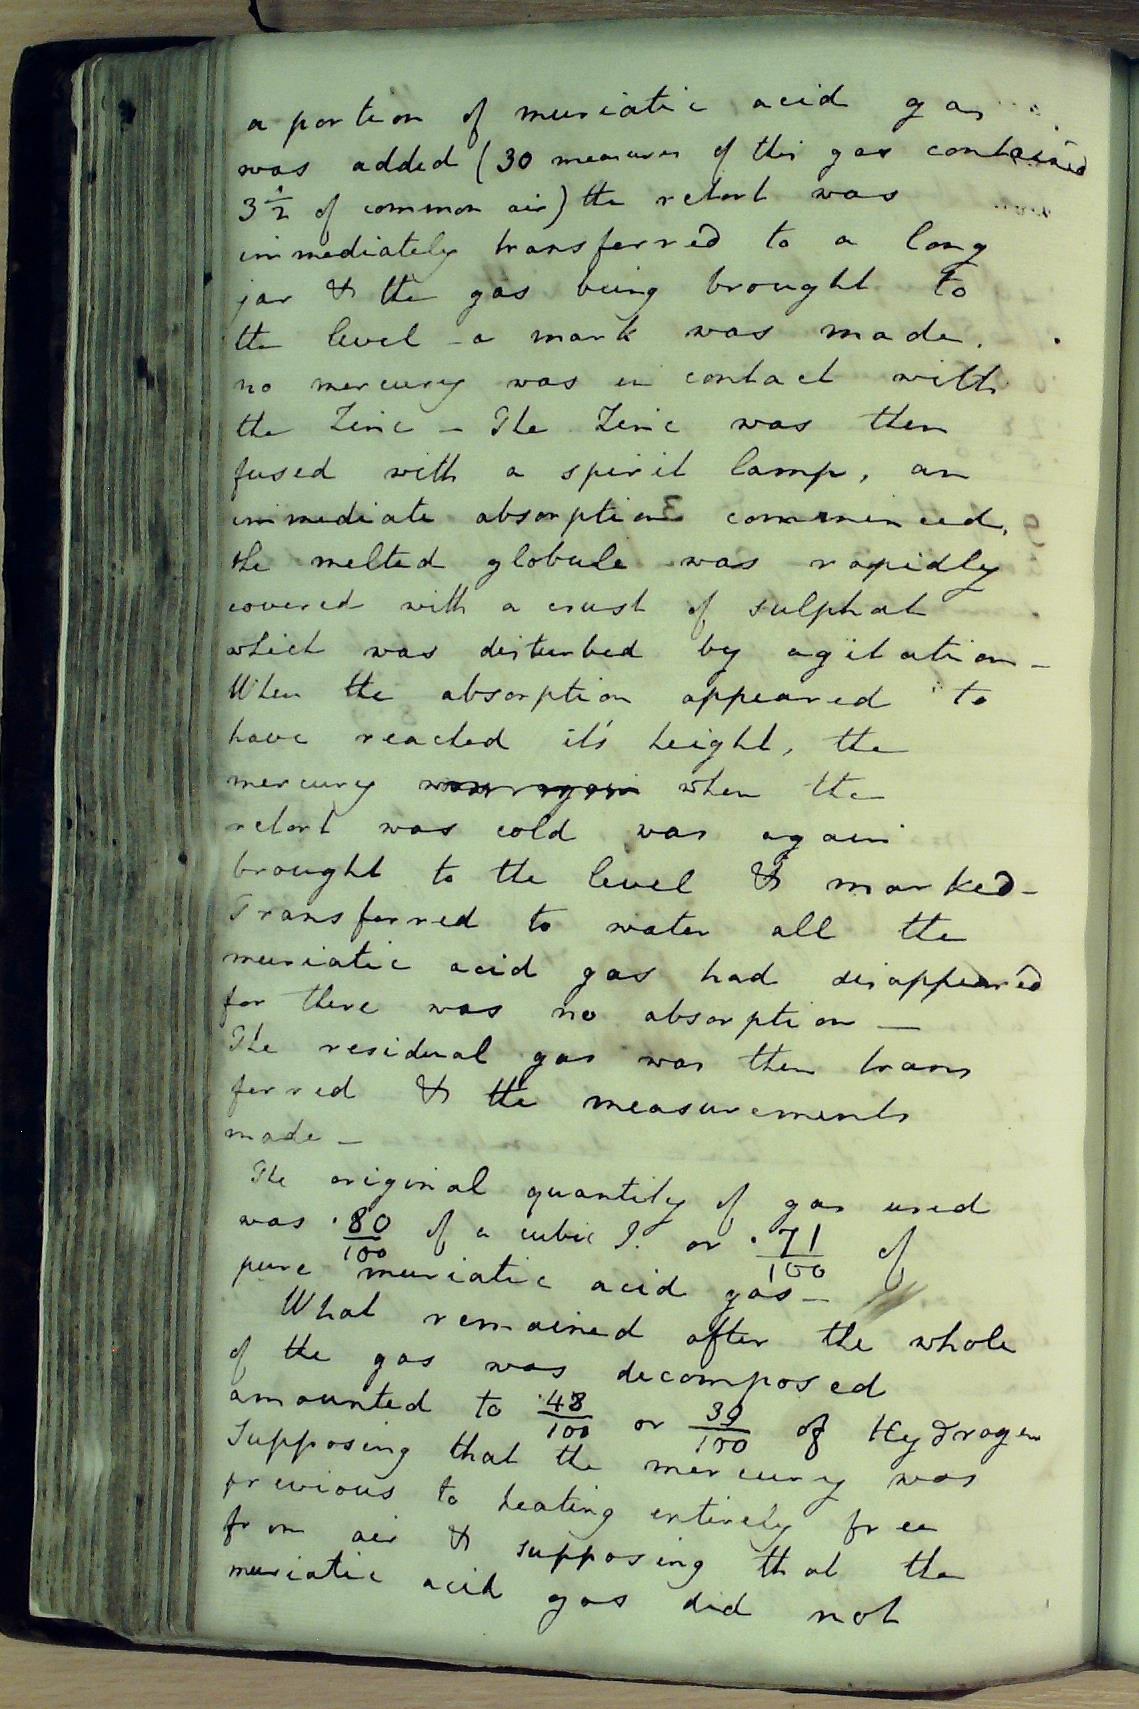 a portion of muriatic acid gas
was added (30 measures of this gas contained
3 1/2 of common air) the retort was
immediately transferred to a long
jar & the gas being brought to
the level - a mark was made.
no mercury was in contact with
the Zinc - The Zinc was then
fused with a spirit lamp, an
immediate absorption commenced,
the melted globule was rapidly
covered with a crust of sulphat
which was disturbed by agitation -
When the absorption appeared to
have reached it's height, the
mercury was again when the
retort was cold was again
brought to the level & marked -
Transferred to water all the
muriatic acid gas had disappeared
for there was no absorption —
The residual gas was then trans
ferred & the measurements
made -
The original quantity of gas used
was .80/100 of a cubic I. or .71/100 of
pure muriatic acid gas -
What remained after the whole
of the gas was decomposed
amounted to .48/100 or 39/100 of Hydrogen
Supposing that the mercury was
previous to heating entirely free
from air & supposing that the
muriatic acid gas did not